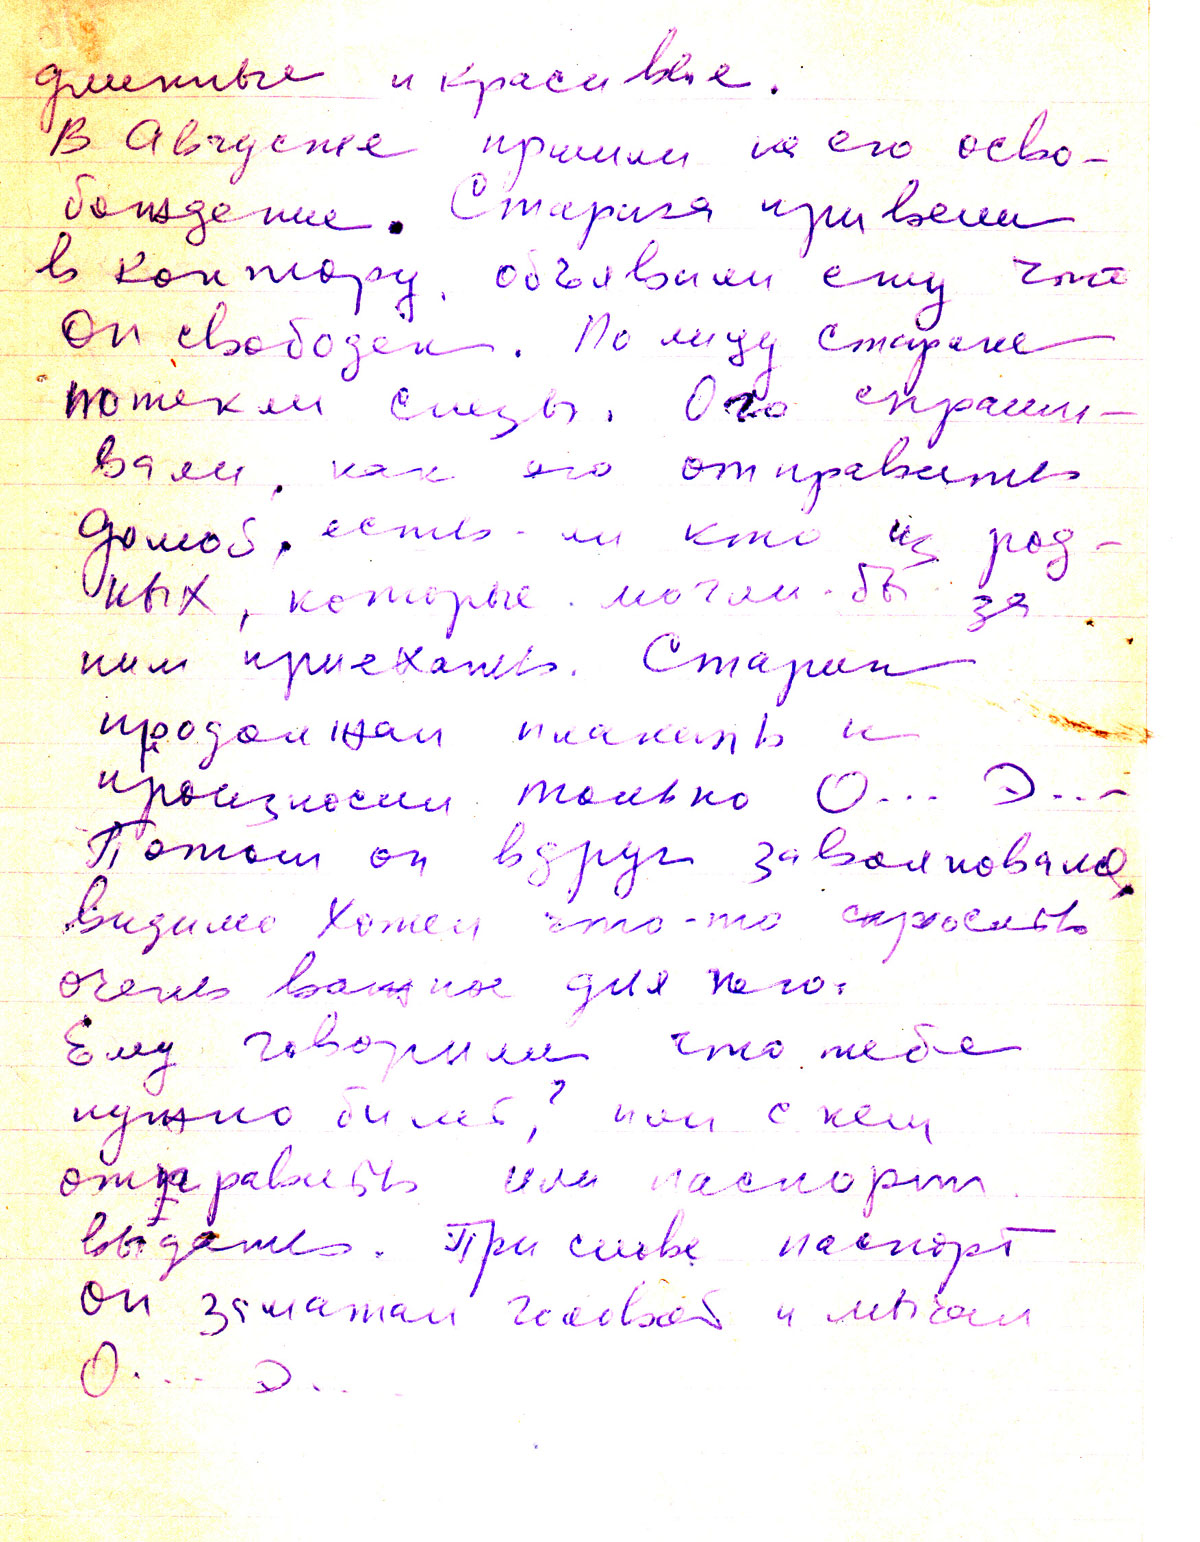 длинные и красивые.
В Августе пришли на его осво-
бождение. Старика привели
в контору, объявили ему что
он свободен. По лицу старика
потекли слезы. Его спраши-
вали, как его отправить
домой, есть-ли кто из род-
ных, которые могли-бы за
ним приехать. Старик
продолжал плакать и
произносил только О... Э...-
Потом он вдруг заволновался,
видимо хотел что-то спросить
очень важное для него.
Ему говорили что тебе
нужно билет,? или с кем
отправить или паспорт
выдать. При слове паспорт
он замотал головой и мычал
О.... Э....